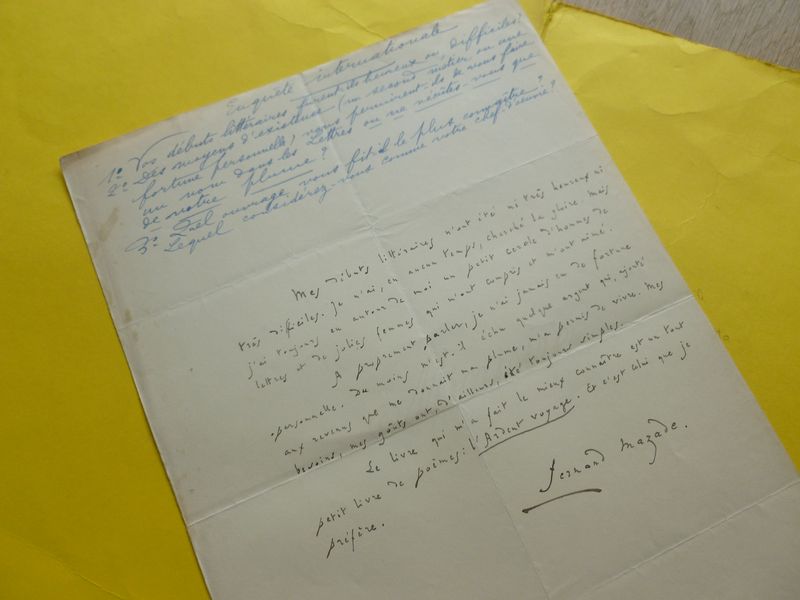 Enquête internationale
1º- Vos débuts littéraires furent-ils heureux ou difficiles?
2º- Des moyens d'existence (un second métier ou une
fortune personnelle) vous permirent-ils de vous faire
un nom dans les Lettres ou ne vécûtes-vous que
de votre plume?
3º- Quel ouvrage vous fit-il le plus connaître?
Lequel considérez-vous comme votre chef d'œuvre?
Mes débuts littéraires n'ont été ni très heureux ni
très difficiles. Je n'ai, en aucun temps, cherché la gloire. Mais
j'ai toujours eu autour de moi un petit cercle d'hommes de
lettres et de jolies femmes qui m'ont compris et m'ont aimé.
A proprement parler, je n'ai jamais eu de fortune
personnelle. Du moins m'est-il échu quelque argent qui, ajouté
aux revenus que me donnait ma plume, m'a permis de vivre. Mes
besoins, mes goûts ont, d'ailleurs, été toujours simples.
Le livre qui m'a fait le mieux connaître est un tout
petit livre de poèmes: l'Ardent voyage. Et c'est celui que je
préfère.
Fernand Mazade.